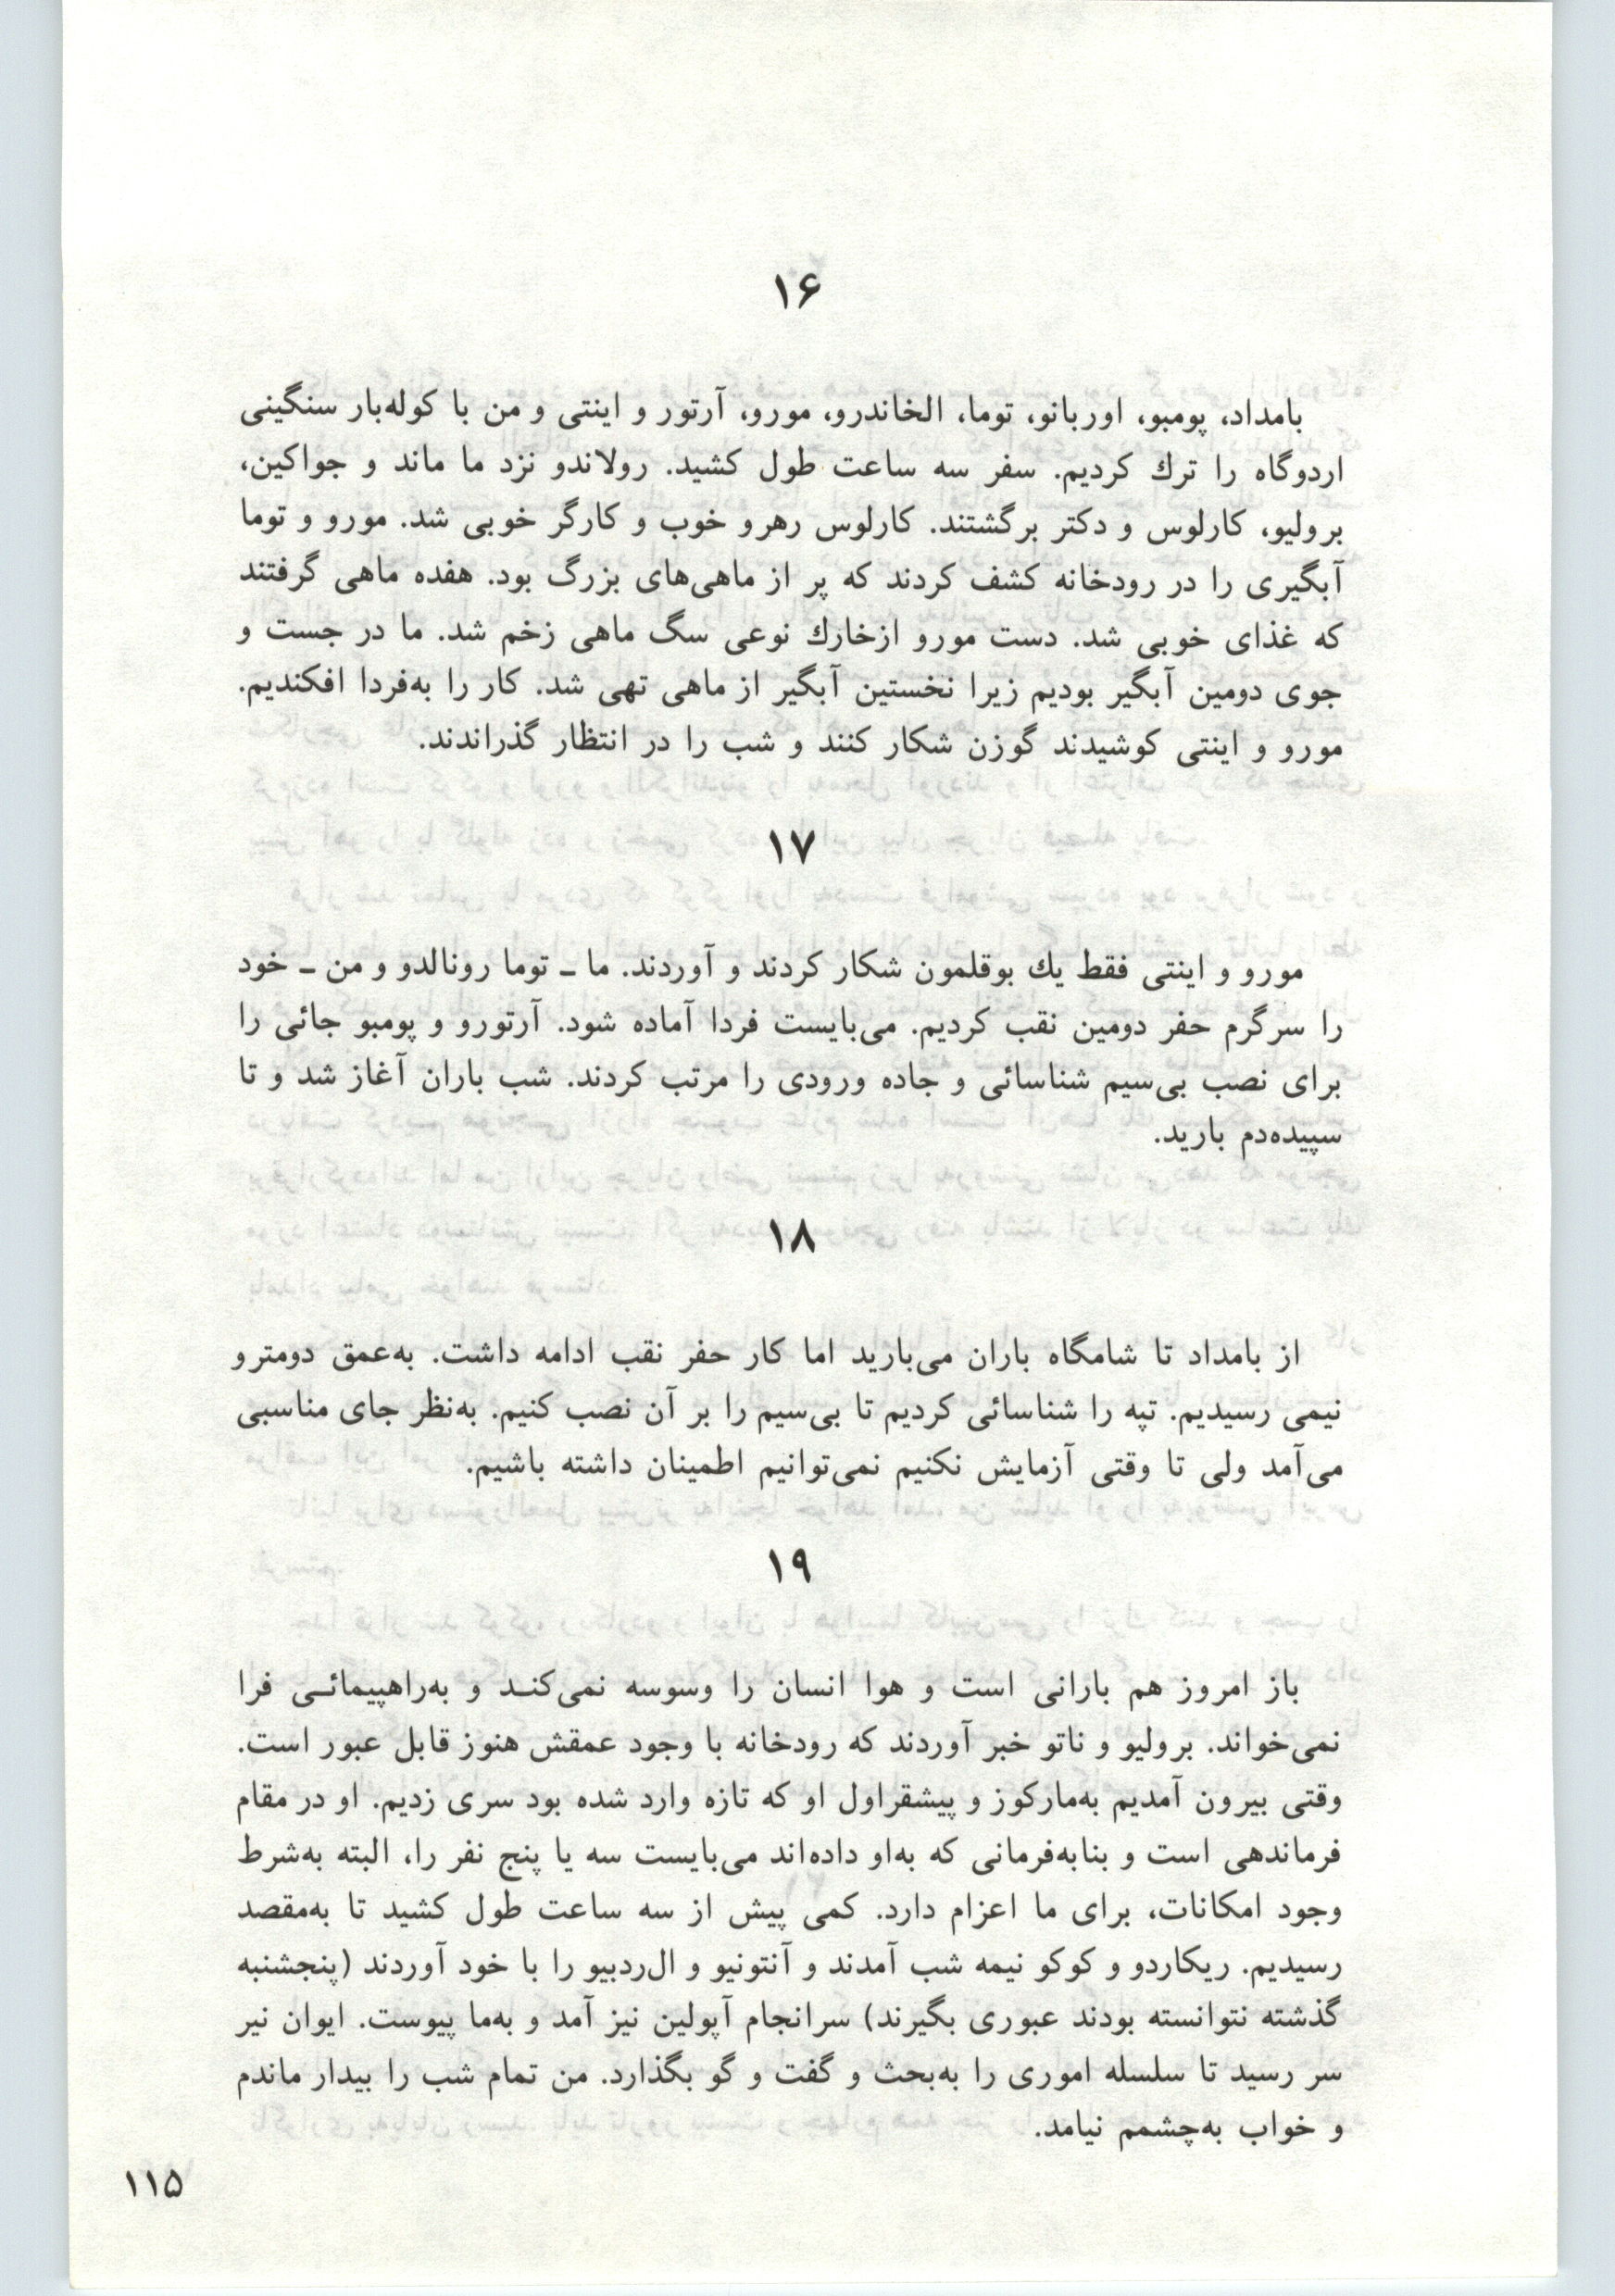 ۱۶
بامداد، پومبو، اوربانو، توما، الخاندرو، مورو، آرتور و اینتی و من با کوله‌بار سنگینی
اردوگاه را ترك کردیم. سفر سه ساعت طول کشید. رولاندو نزد ما ماند و جواکین،
برولیو، کارلوس و دکتر برگشتند. کارلوس رهرو خوب و کارگر خوبی شد. مورو و توما
آبگیری را در رودخانه کشف کردند که پر از ماهی‌های بزرگ بود. هفده ماهی گرفتند
که غذای خوبی شد. دست مورو ازخارك نوعی سگ ماهی زخم شد. ما در جست و
جوی دومین آبگیر بودیم زیرا نخستین آبگیر از ماهی تهی شد. کار را به‌فردا افکندیم.
مورو و اینتی کوشیدند گوزن شکار کنند و شب را در انتظار گذراندند.
۱۷
مورو و اینتی فقط یك بوقلمون شکار کردند و آوردند. ما ـ توما رونالدو و من ـ خود
را سرگرم حفر دومین نقب کردیم. می‌بایست فردا آماده شود. آرتورو و پومبو جائی را
برای نصب بی‌سیم شناسائی و جاده ورودی را مرتب کردند. شب باران آغاز شد و تا
سپیده‌دم بارید.
۱۸
از بامداد تا شامگاه باران می‌بارید اما کار حفر نقب ادامه داشت. به‌عمق دومترو
نیمی رسیدیم. تپه را شناسائی کردیم تا بی‌سیم را بر آن نصب کنیم. به‌نظر جای مناسبی
می‌آمد ولی تا وقتی آزمایش نکنیم نمی‌توانیم اطمینان داشته باشیم.
۱۹
باز امروز هم بارانی است و هوا انسان را وسوسه نمی‌کنـد و به‌راهپیمائـی فرا
نمی‌خواند. برولیو و ناتو خبر آوردند که رودخانه با وجود عمقش هنوز قابل عبور است.
وقتی بیرون آمدیم به‌مارکوز و پیشقراول او که تازه وارد شده بود سری زدیم. او در مقام
فرماندهی است و بنابه‌فرمانی که به‌او داده‌اند می‌بایست سه یا پنج نفر را، البته به‌شرط
وجود امکانات، برای ما اعزام دارد. کمی پیش از سه ساعت طول کشید تا به‌مقصد
رسیدیم. ریکاردو و کوکو نیمه شب آمدند و آنتونیو و ال‌ردبیو را با خود آوردند (پنجشنبه
گذشته نتوانسته بودند عبوری بگیرند) سرانجام آپولین نیز آمد و به‌ما پیوست. ایوان نیر
سر رسید تا سلسله اموری را به‌بحث و گفت و گو بگذارد. من تمام شب را بیدار ماندم
و خواب به‌چشمم نیامد.
۱۱۵